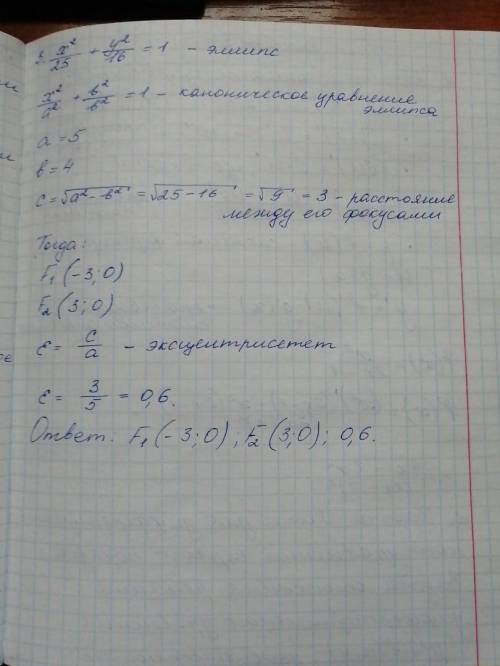 3. x²/25 + y²/16 = 1 – эллипс
x²/a² + в²/в² = 1 – каноническое уравнение
эллипса
a = 5
в = 4
c = √a² - в² = √25 - 16 = √9 = 3 – расстояние
между его фокусами
Тогда:
F₁ (-3; 0)
F₂ (3; 0)
ε = c/a – эксцентрисетет
ε = 3/5 = 0,6.
Ответ: F₁ (-3; 0), F₂ (3; 0); 0,6.